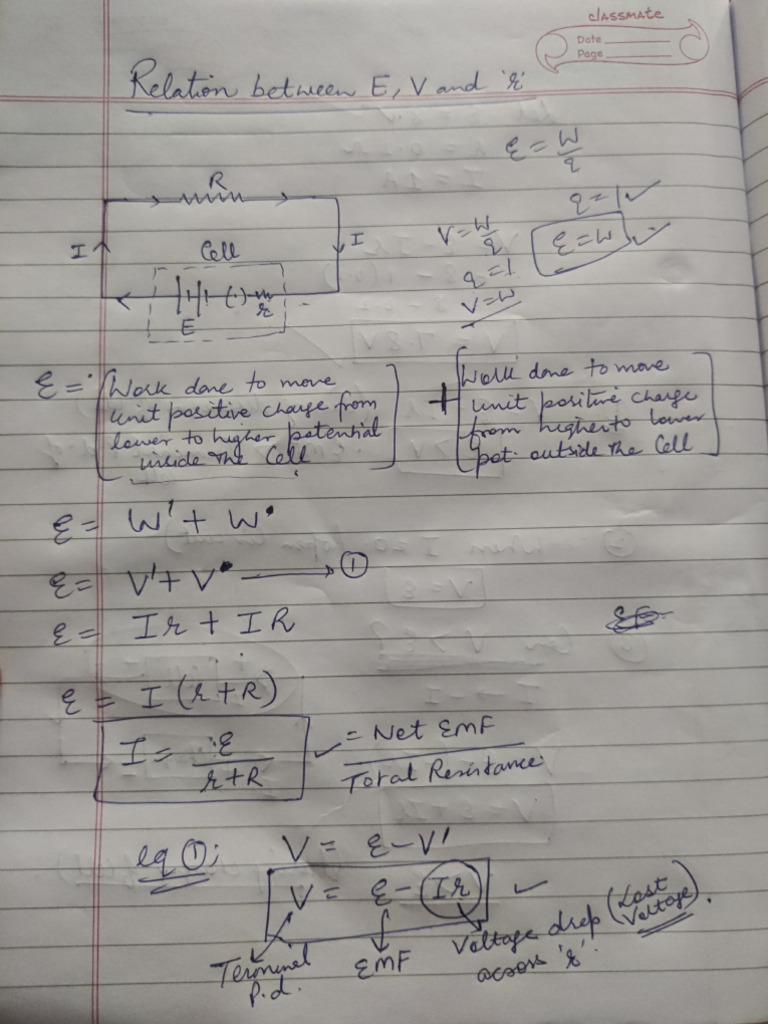 classmate
Date
Page
Relation between E, V and 'r'
ε = W/q
q = 1 ✓
ε = W ✓
V = W/q
q = 1
V = W
R
I
I
Cell
E
r
ε = [Work done to move
unit positive charge from
lower to higher potential
inside the Cell]
+ [Work done to move
unit positive charge
from higher to lower
pot. outside the Cell]
ε = W' + W
ε = V' + V → ①
ε = Ir + IR
ε = I (r + R)
I = ε / (r + R) ✓ = Net EMF / Total Resistance
eq ①:
V = ε - V'
V = ε - Ir ✓
Terminal
P.d.
EMF
Voltage drop (Lost
Voltage).
across 'r'.